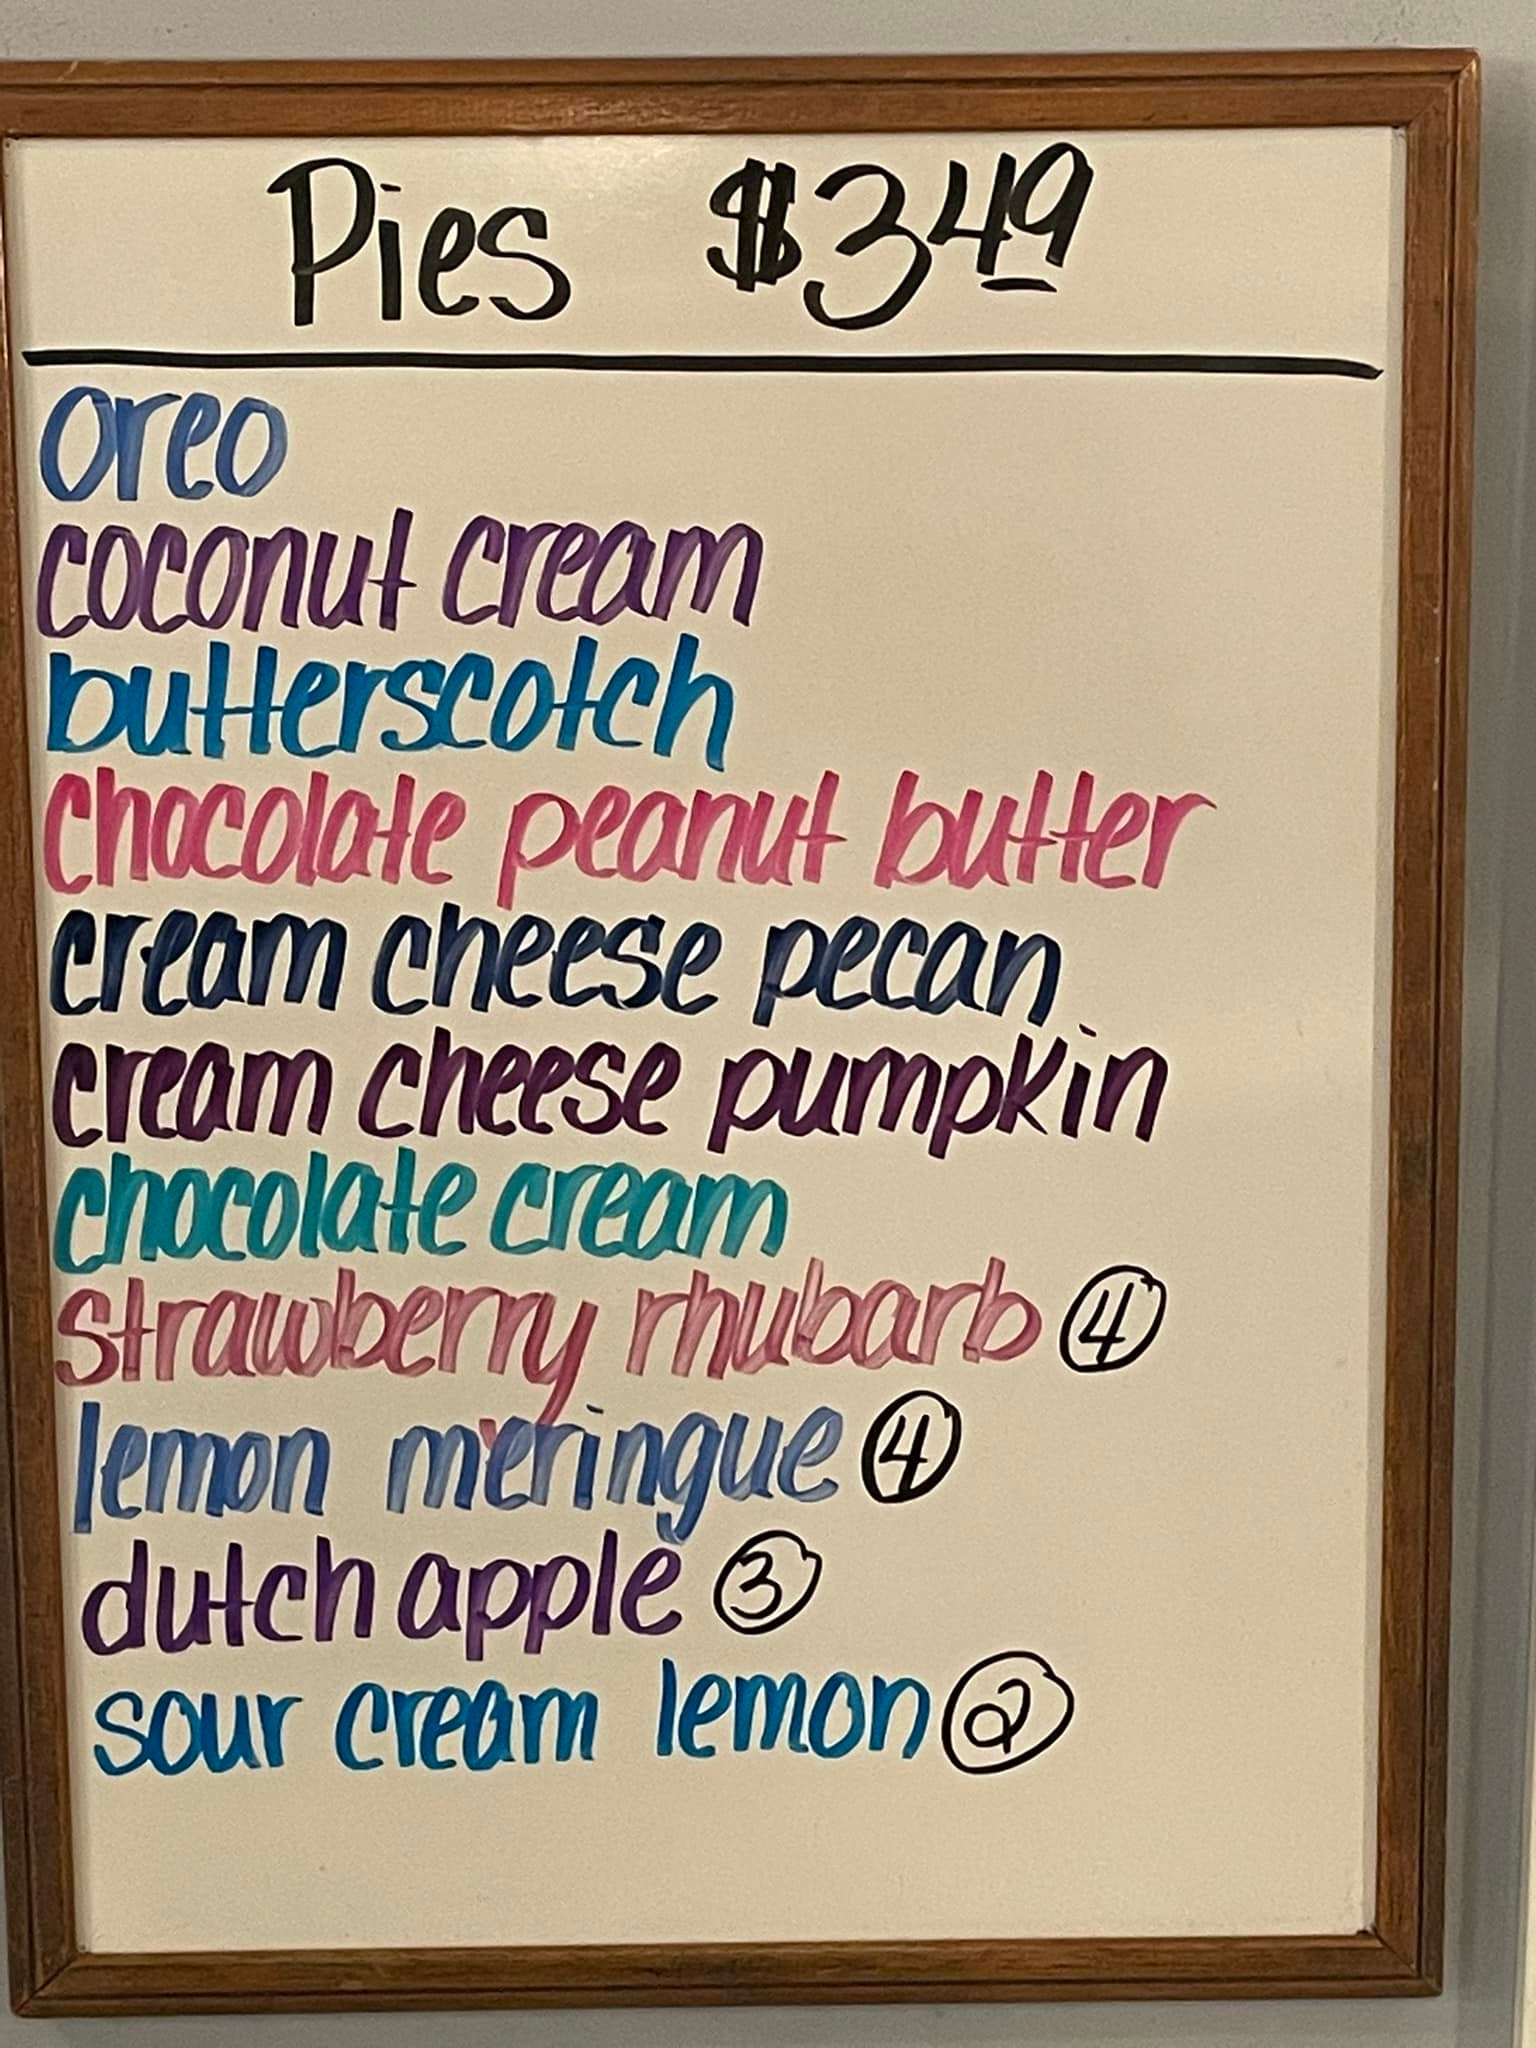 Pies $3.49
oreo
coconut cream
butterscotch
chocolate peanut butter
cream cheese pecan
cream cheese pumpkin
chocolate cream
strawberry rhubarb 4
lemon meringue 4
dutch apple 3
sour cream lemon 2